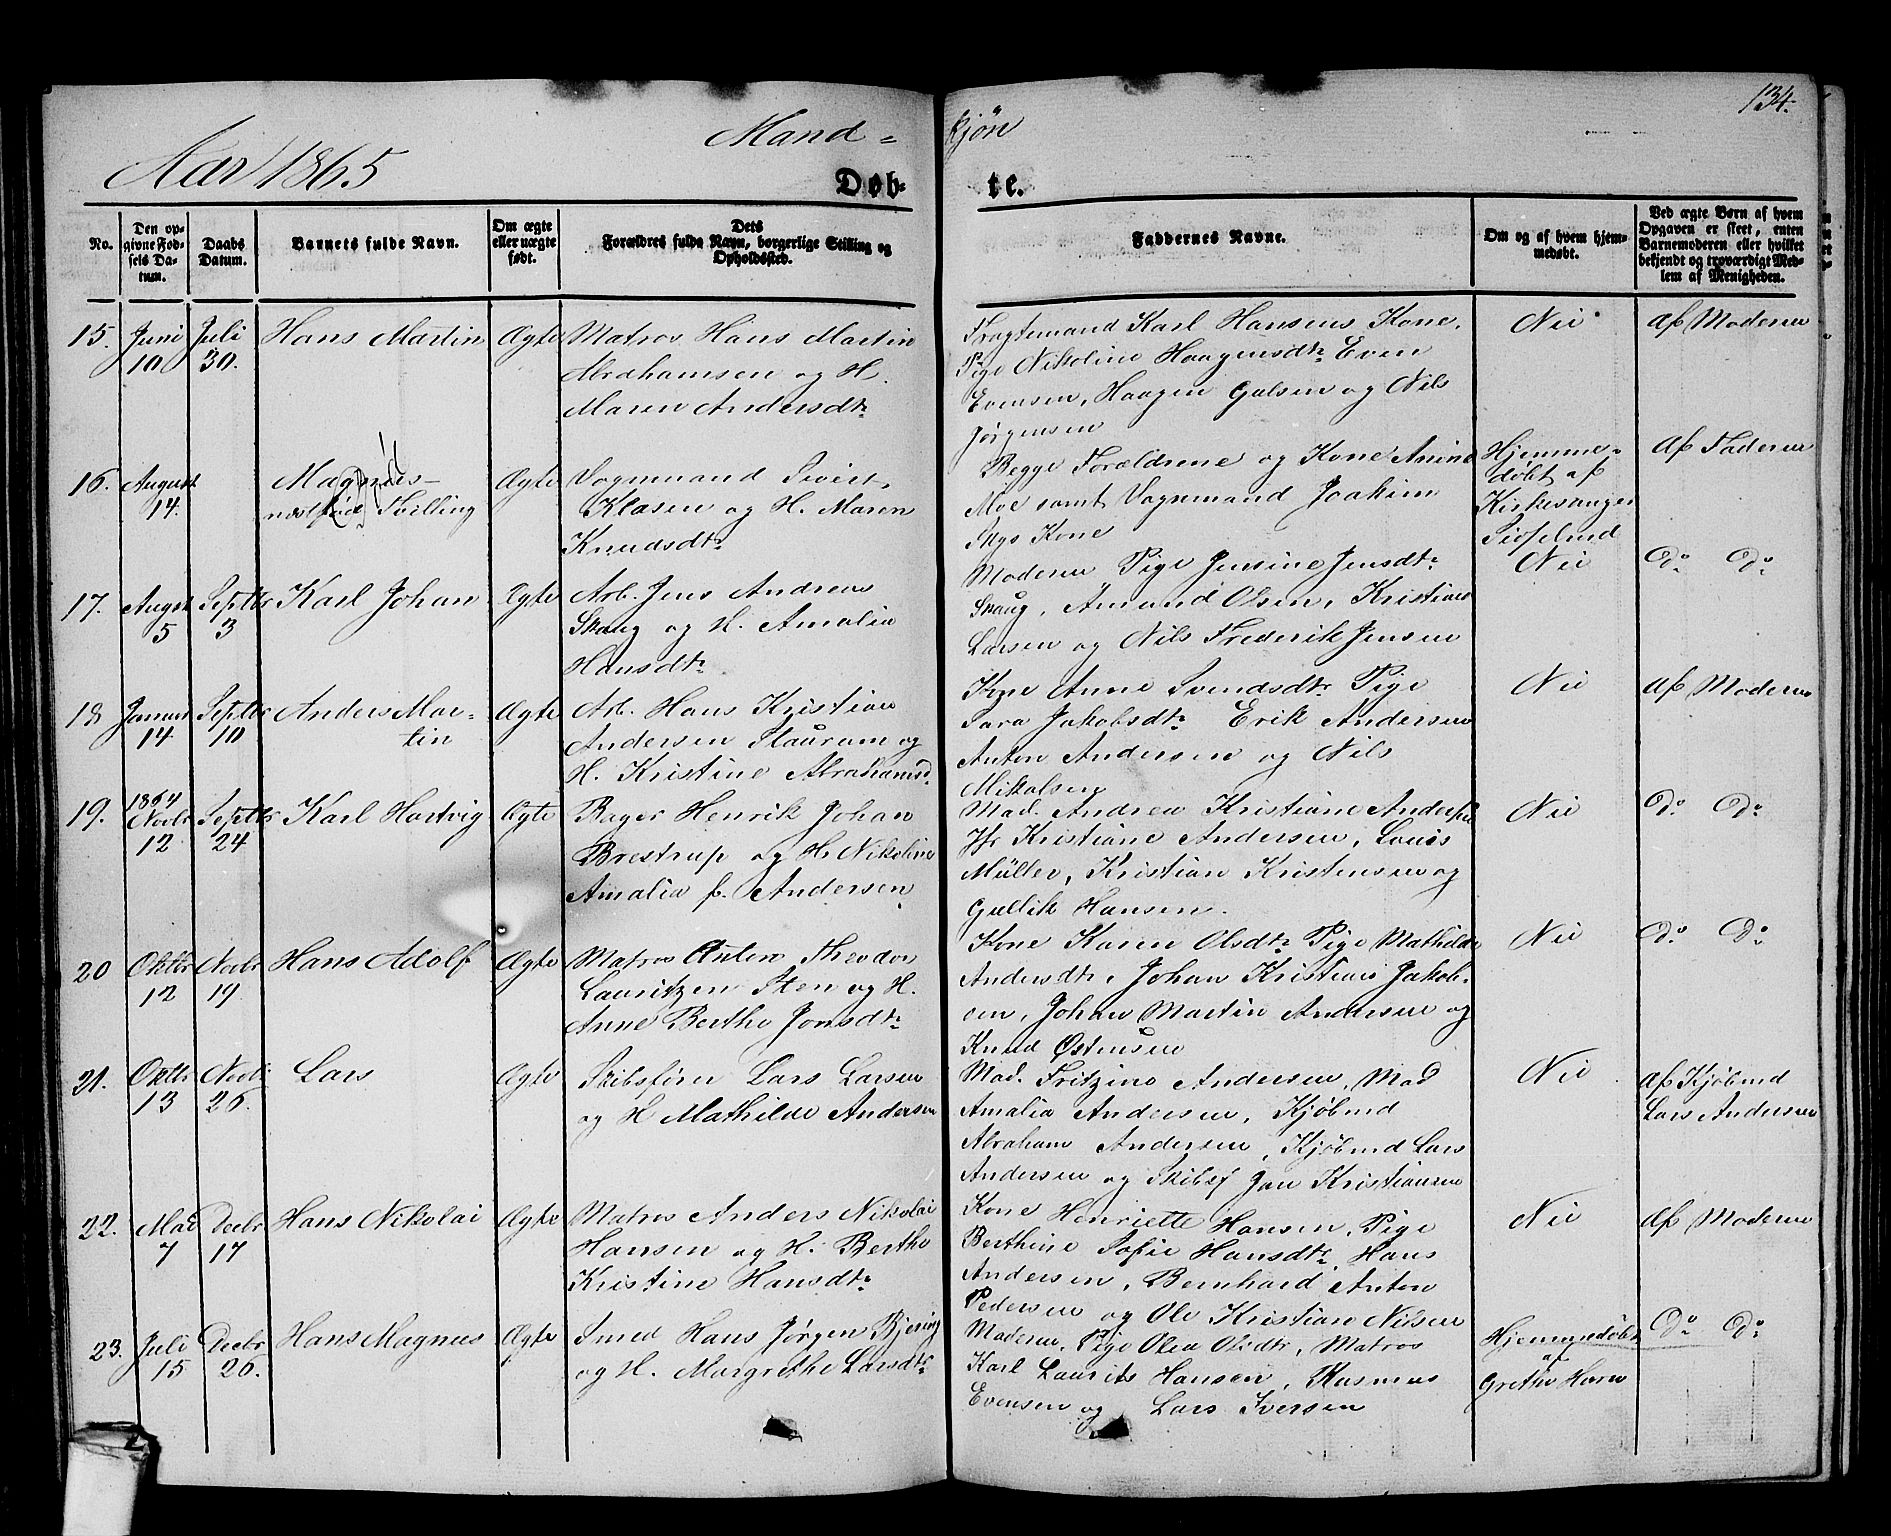 134.
Mand= kjøn
Aar 1865
Døb- te.
No.
Den opgivne Fødsels Datum.
Daabs Datum.
Barnets fulde Navn.
Om ægte eller uægte født.
Dets Forældres fulde Navn, borgerlige Stilling og Opholdssted.
Faddernes Navne.
Om og af hvem hjemmedøbt.
Ved ægte Børn af hvem Opgaven er skeet, enten Barnemoderen eller hvilket bekjendt og troværdigt Medlem af Menigheden.
15. Juni 10 Juli 30. Hans Martin Ægte
Matros Hans Martin
Abrahamsen og H.
Maren Andersdtr
Fragtemand Karl Hansens Kone,
Pige Nikoline Haagensdtr Even
Evensen, Haagen Gulsen og Nils
Jørgensen
Nei
af Moderen
16. August 14. Magnus
Tvilling Ægte
Vognmand Sivert
Klasen og H. Maren
Knudsdtr
Begge Forældrene og Kone Anine
Moe samt Vognmand Joakim
Mys Kone
Hjemme-
døbt af
Kirkesanger
af Faderen
17. August 5 Septbr 3 Karl Johan Ægte
Arb. Jens Andreas
Skaug og H. Amalia
Hansdtr
Moderen, Pige Jensine Jensdtr
Skaug, Amund Olsen, Kristian
Larsen og Nils Frederik Jensen
Nei
do do
18 Januar 14 Septbr 10 Anders Mar-
tin Ægte
Arb. Hans Kristian
Andersen Staurum og
H. Kristine Abrahamsd.
Kone Anne Svendsdtr Pige
Sara Jakobsdtr Erik Andersen
Anton Andersen og Nils
Mikalsen
Nei
af Moderen
19. 1864 Novbr 12 Septbr 24 Karl Hartvig Ægte
Bager Henrik Johan
Brestrup og H. Nikoline
Amalia f. Andersen
Mad. Andrea Kristiane Andersen
Jfr Kristiane Andersen, Louis
Müller, Kristian Kristensen og
Gullik Hansen.
Nei
do do
20 Oktbr 12 Novbr 19. Hans Adolf Ægte
Matros Anton Theodor
Lauritzen Sten og H.
Anne Berthe Jonsdtr
Kone Karen Olsdtr Pige Mathilde
Andersdtr, Johan Kristian Jakob-
sen, Johan Martin Andersen og
Knud Østensen
Nei
do do
21. Oktbr 13 Novbr 26. Lars Ægte
Skibsfører Lars Larsen
og H Mathilde Andersen
Mad. Fritzine Andersen, Mad
Amalia Andersen, Kjøbmd
Abraham Andersen, Kjøbmd Lars
Andersen og Skibsf Jan Kristiansen
Nei
af Kjøbmd
Lars Andersen
22. Mai 7 Decbr 17 Hans Nikolai Ægte
Matros Anders Nikolai
Hansen og H. Berthe
Kristine Hansdtr
Kone Henriette Hansen, Pige
Berthine Sofie Hansdtr, Hans
Andersen, Bernhard Anton
Pedersen og Ole Kristian Nilsen
Nei
af Moderen
23. Juli 15 Decbr 26. Hans Magnus Ægte
Smed Hans Jørgen Bjering
og H. Margrethe Larsdtr
Moderen, Pige Olea Olsdtr, Matros
Karl Laurits Hansen, Rasmus
Evensen og Lars Iversen
Hjemmedøbt
af
Grethe Horn
do do